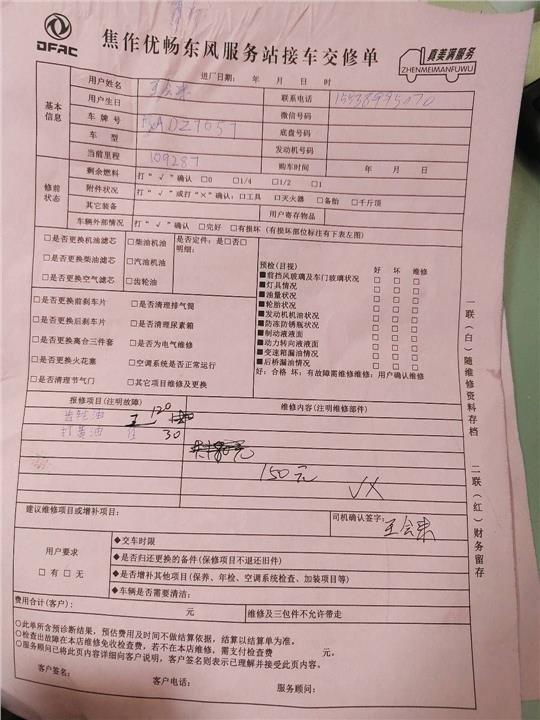 DFAC
焦作优畅东风服务站接车交修单
真美满服务
ZHENMEIMANFUWU
进厂日期: 年 月 日 时
基本信息
用户姓名 联系电话
用户生日 微信号码
车牌号 底盘号码
车型 发动机号码
当前里程 109287 购车时间 年 月 日
修前状态
剩余燃料 打“√”确认 □0 □1/4 □1/2 □1
附件状况 打“√”或打“×”确认: 口工具 口灭火器 □备胎 □千斤顶
其它装备 用户寄存物品
车辆外部情况 打“√”确认 □完好 □有损坏 (有损坏部位标注有下表左图)
□是否更换机油滤芯 □柴油机油 是否定件: 是□否□
明细:
□是否更换柴油滤芯 □汽油机油
□是否更换空气滤芯 □齿轮油
□是否更换前刹车片 □是否清理排气筒
□是否更换后刹车片 □是否清理尿素箱
□是否更换离合三件套 □是否为电气维修
□是否更换火花塞 □空调系统是否正常运行
□是否清理节气门 □其它项目维修及更换
预检(目视) 好 坏 维修
■前挡风玻璃及车门玻璃状况 □ □ □
■灯具情况 □ □ □
■油量状况 □ □ □
■轮胎状况 □ □ □
■发动机机油状况 □ □ □
■防冻防锈瓶状况 □ □ □
■制动液液面 □ □ □
■动力转向液液面 □ □ □
■变速箱漏油情况 □ □ □
■后桥漏油情况 □ □ □
好: 合格 坏: 有故障需维修维修: 用户确认维修
报修项目(注明故障) 维修内容(注明维修部件)
齿轮油 120
打黄油 30
150元
建议维修项目或增补项目: 司机确认签字:
用户要求
□有 □无
◆交车时限
◆是否归还更换的备件(保修项目不退还旧件)
◆是否增补其他项目(保养、年检、空调系统检查、加装项目等)
◆车辆是否需要清洁:
费用合计(客户): 元 维修及三包件不允许带走
○此单所含预诊断结果, 预估费用及时间不做结算依据, 结算以结算单为准。
○检查出故障在本店维修免收检查费, 若不在本店维修, 需支付检查费 元。
○服务顾问已将此页内容详细向客户说明, 客户签名则表示已理解并接受此页内容。
客户签名: 客户电话: 服务顾问:
一联(白)随维修资料存档 二联(红)财务留存